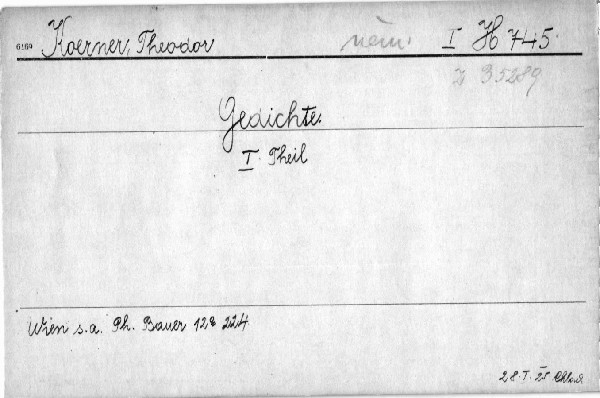 6169 Koerner, Theodor něm. I H 745.
Z 35289
Gedichte.
I. Theil
Wien s.a. Ph. Bauer 12° 224.
28.I.25